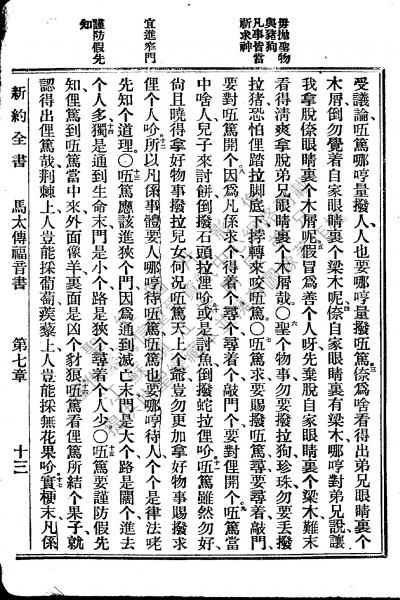 毋拋聖物
與豬狗
凡事皆當
祈求神
宜進窄門
謹防假先
知
受議論𠲎篤哪哼量撥人人也要哪哼量撥𠲎篤㑚爲啥看得出弟兄眼睛裏个
木屑倒勿覺着自家眼睛裏个梁木呢㑚自家眼睛裏有梁木哪哼對弟兄說讓
我拿脫㑚眼睛裏个木屑呢假冒爲善个人呀先棄脫自家眼睛裏个梁木難末
看得淸爽拿脫弟兄眼睛裏个木屑哉〇聖个物事勿要撥拉狗珍珠勿要丟撥
拉猪恐怕俚踏拉脚底下㧍轉來咬𠲎篤〇𠲎篤求要賜撥𠲎篤尋要尋着敲門
要對𠲎篤開个因爲凡係求个得着个尋个尋着个敲門个要對俚開个𠲎篤當
中啥人兒子來討餅倒撥石頭拉俚吤或是討魚倒撥蛇拉俚吤𠲎篤雖然勿好
尙且曉得拿好物事撥拉兒女何況𠲎篤天上个爺豈勿更加拿好物事賜撥求
俚个人吤所以凡係事體要人哪哼待𠲎篤𠲎篤也要哪哼待人个个是律法咾
先知个道理〇𠲎篤應該進狹个門因爲通到滅亡末門是大个路是闊个進去
个人多獨是通到生命末門是小个路是狹个尋着个人少〇𠲎篤要謹防假先
知俚篤到𠲎篤當中來外面像羊裏面是凶个豺狼𠲎篤看俚篤所結个果子就
認得出俚篤哉荊棘上人豈能採葡萄蒺藜上人豈能採無花果吤實梗末凡係
新約全書　馬太傳福音書　第七章　十三